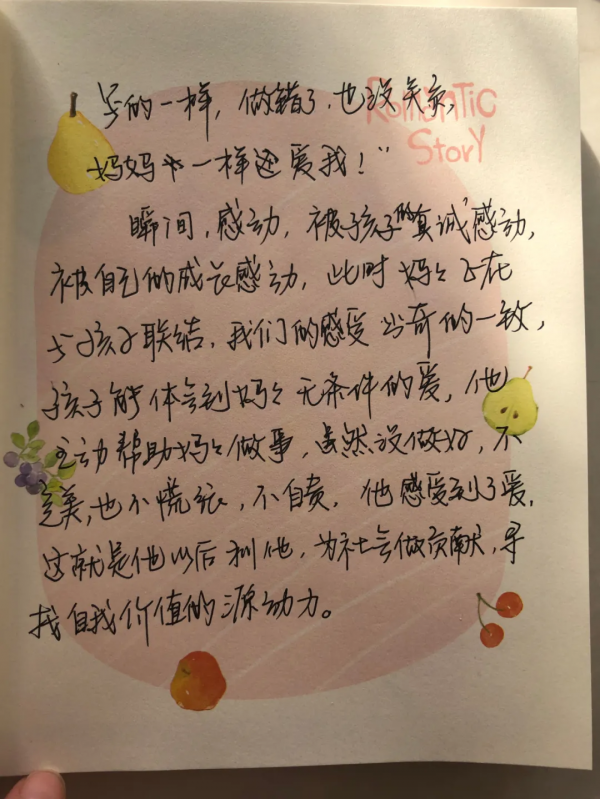 的一样，做错了，也没关系，
Romantic
Story
妈妈也一样还爱我！”
瞬间，感动，被孩子的真诚感动，
被自己的成长感动，此时妈妈正在
与孩子联结，我们的感受出奇的一致，
孩子能体会到妈妈无条件的爱，他
主动帮助妈妈做事，虽然没做好，不
完美，也不慌张，不自责，他感受到了爱，
这就是他以后利他，为社会做贡献，寻
找自我价值的源动力。